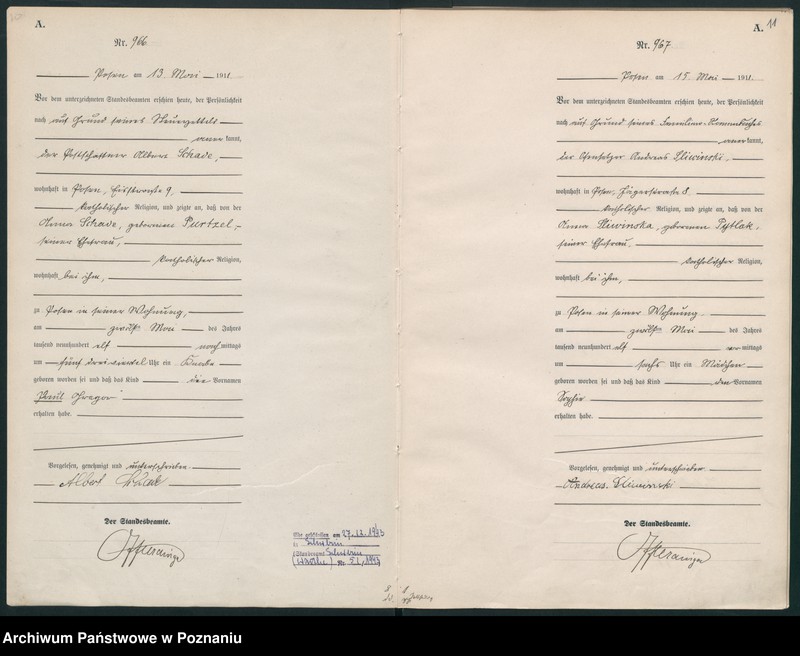 A.
Nr. 966
Posen am 13. Mai 1911.
Vor dem unterzeichneten Standesbeamten erschien heute, der Persönlichkeit
nach auf Grund seines Steuerzettels
anerkannt,
der Postschaffner Albert Schade,
wohnhaft in Posen, 9,
katholischer Religion, und zeigte an, daß von der
Anna Schade, geborenen Purtzel,
seiner Ehefrau,
katholischer Religion,
wohnhaft bei ihm,
zu Posen in seiner Wohnung,
am zwölften Mai des Jahres
tausend neunhundert elf nachmittags
um fünf dreiviertel Uhr ein Knabe
geboren worden sei und daß das Kind die Vornamen
Paul Gregor
erhalten habe.
Vorgelesen, genehmigt und unterschrieben.
Albert Schade
Der Standesbeamte.
Ehe geschlossen am 27.12.1943
in
Standesamt
Nr. 51/1943
A. 11
Nr. 967
Posen am 15. Mai 1911.
Vor dem unterzeichneten Standesbeamten erschien heute, der Persönlichkeit
nach auf Grund seines Familien-Stammbuches
anerkannt,
der Ofensetzer Andreas Sliwinski,
wohnhaft in Posen, Jägerstraße 8
katholischer Religion, und zeigte an, daß von der
Anna Sliwinska, geborenen Pytlak,
seiner Ehefrau,
katholischer Religion,
wohnhaft bei ihm,
zu Posen in seiner Wohnung
am zwölften Mai des Jahres
tausend neunhundert elf vormittags
um sechs Uhr ein Mädchen
geboren worden sei und daß das Kind den Vornamen
Sophie
erhalten habe.
Vorgelesen, genehmigt und unterschrieben
Andreas Sliwinski
Der Standesbeamte.
Archiwum Państwowe w Poznaniu